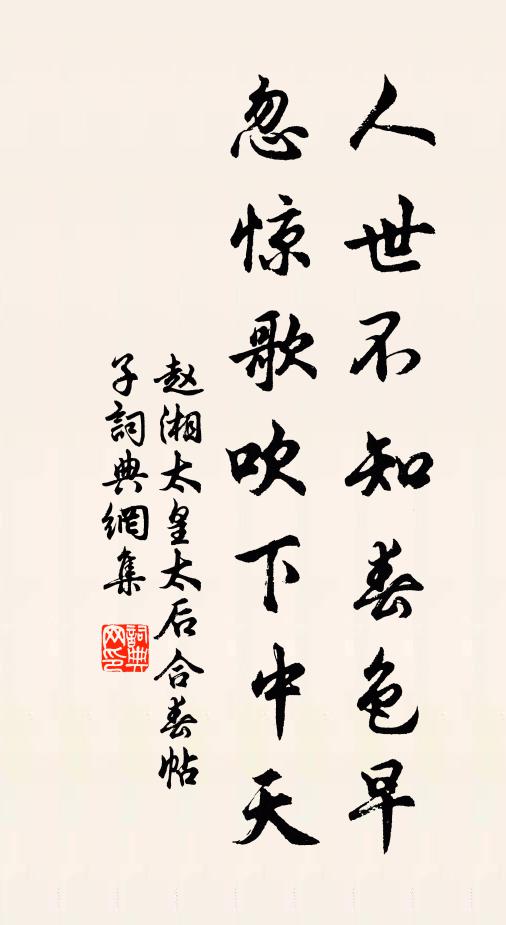 人世不知春色早
忽惊歌吹下中天
赵湘太皇太后合春帖
子詞典網集
詞典网印